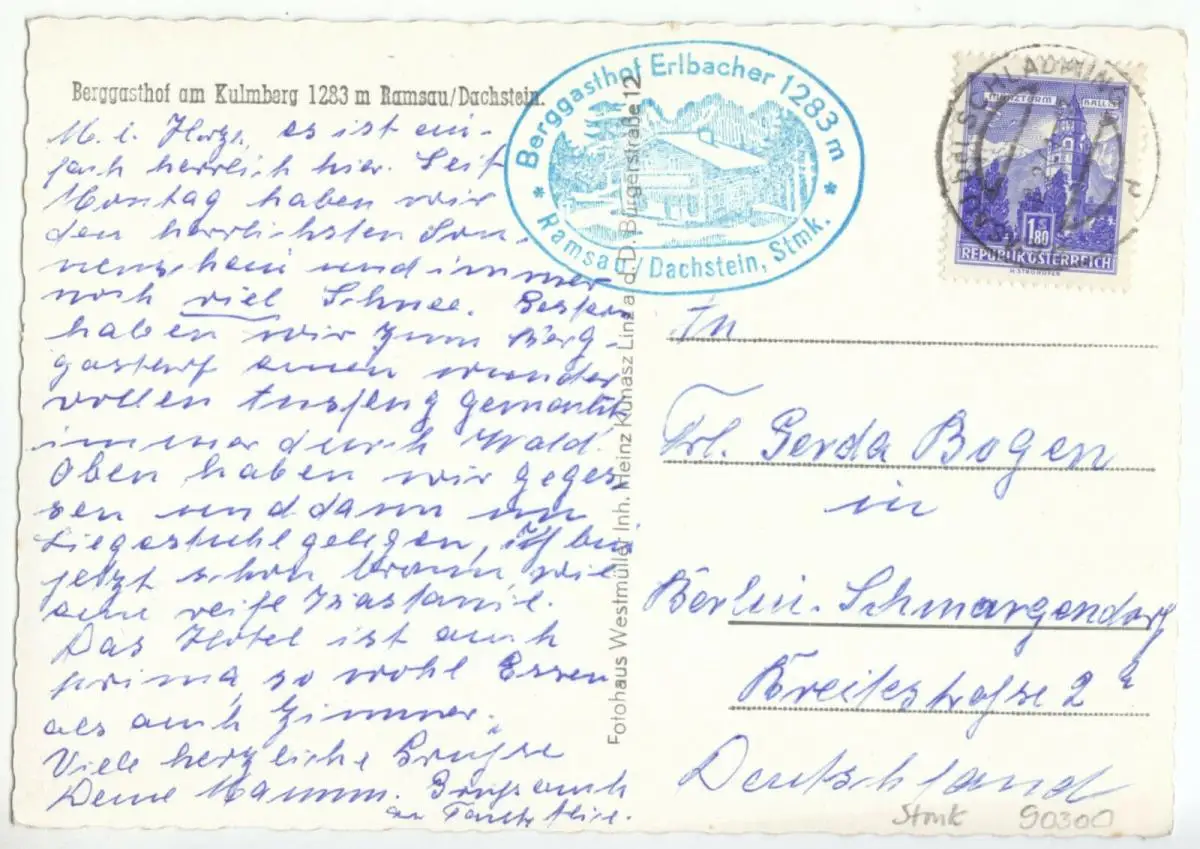 Berggasthof am Kulmberg 1283 m Ramsau/Dachstein.
M. l. Herzl, es ist ein-
fach herrlich hier. Seit
Montag haben wir
den herrlichsten Son-
nenschein und immer
noch viel Schnee. Gestern
haben wir zum Berg-
gasthof einen wunder
vollen Ausflug gemacht
immer durch Wald.
Oben haben wir geges-
sen und dann im
Liegestuhl gelegen, ich bin
jetzt schon braun, wie
eine reife Kastanie.
Das Hotel ist auch
prima, so wohl Essen
als auch Zimmer.
Viele herzliche Grüße
Deine Mamm. Gruß auch
an Tante Alice.
Fotohaus Westmüller Inh. Heinz Kunasz Linz a. d. D. Bürgerstraße 12
* Berggasthof Erlbacher 1283 m *
Ramsau/Dachstein, Stmk.
SCHLADMING
MÜNZTURM HALL
1.80
REPUBLIK ÖSTERREICH
In
Frl. Gerda Bogen
in
Berlin-Schmargendorf
Breitestraße 2a
Deutschland
Stmk 90300